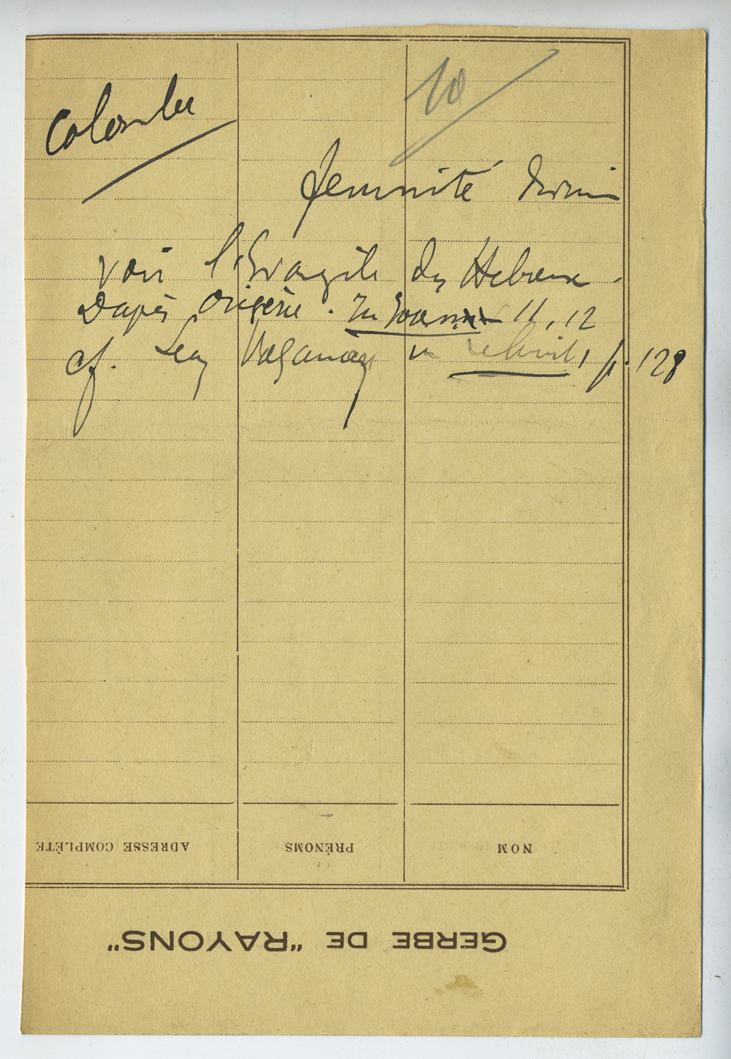 10
Colombe
féminité divine
voir l'Evangile des Hébreux.
D'après Origène. In Joannem 11, 12
cf. Léon Vaganay in p. 128
ADRESSE COMPLÈTE PRÉNOMS NOM
GERBE DE "RAYONS"